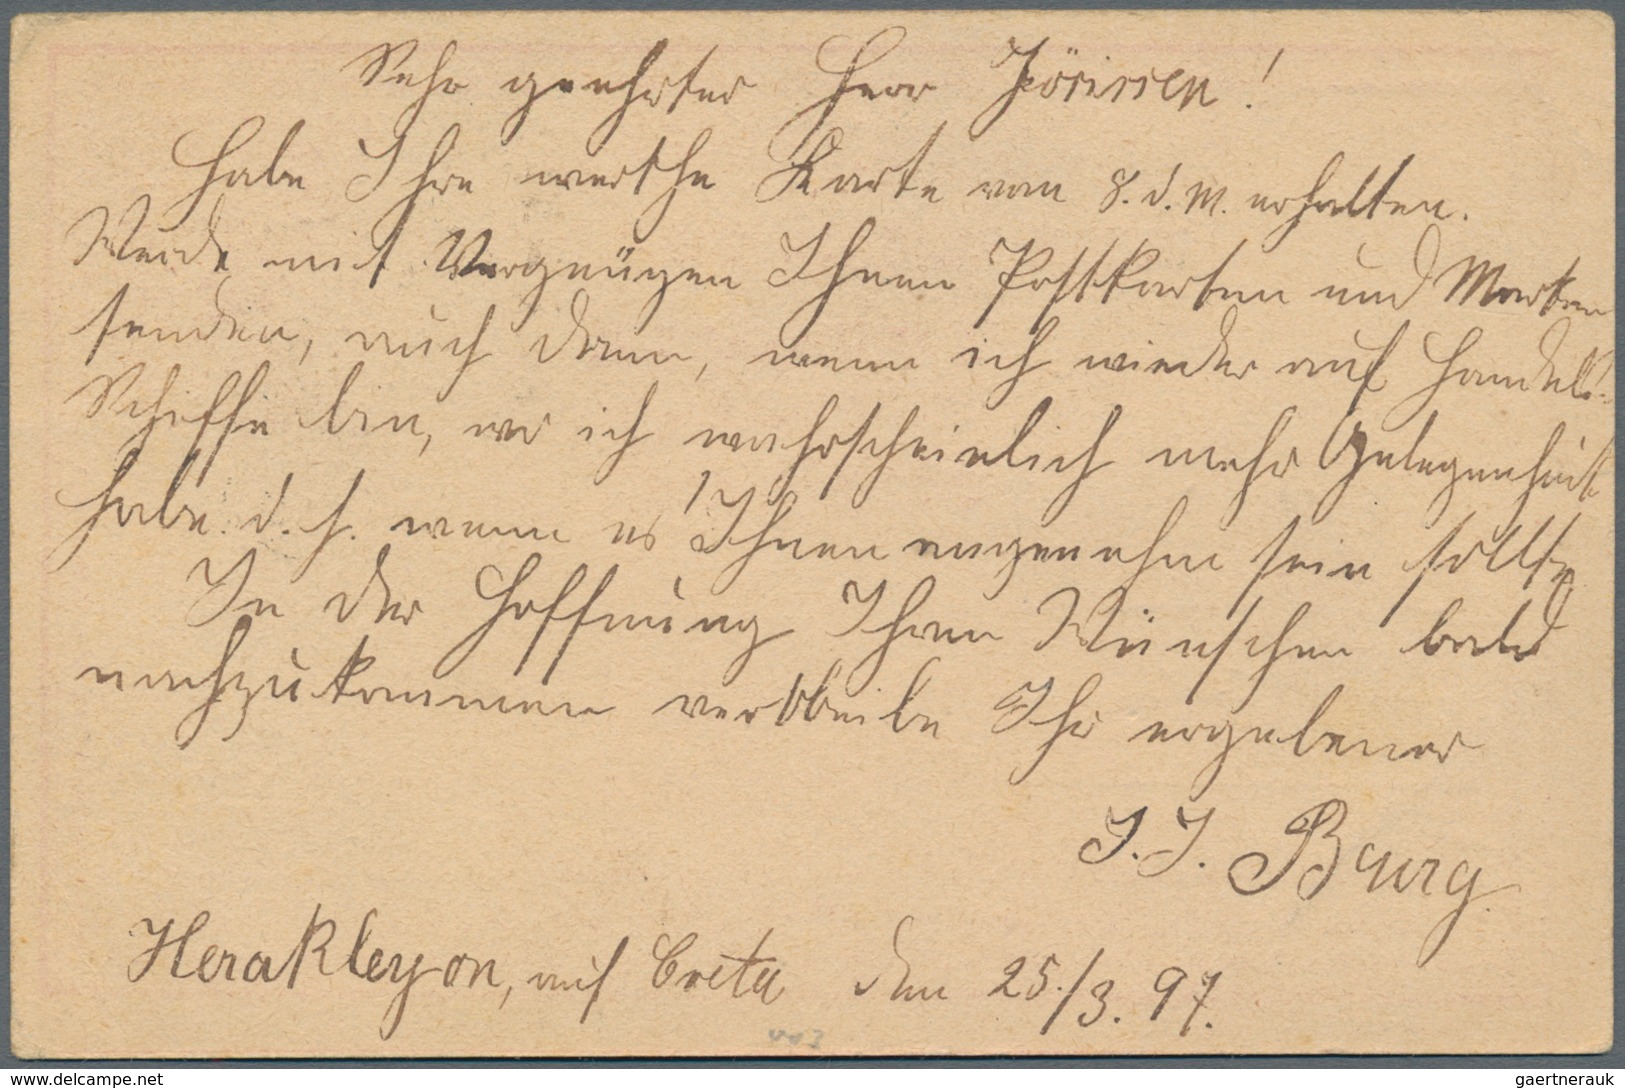 Sehr geehrter Herr Jörissen!
Habe Ihre werthe Karte von 8. d. M. erhalten.
Werde mit Vergnügen Ihnen Postkarten und Marken
senden, auch dann, wenn ich wieder auf Handels-
Schiffe bin, wo ich wahrscheinlich mehr Gelegenheit
habe d. h. wenn es Ihnen angenehm sein sollte,
In der Hoffnung Ihren Wünschen bald
nachzukommen verbleibe Ihr ergebener
J. J. Burg
Herakleyon, auf Creta den 25./3. 97.
gaertnerauk
www.delcampe.net